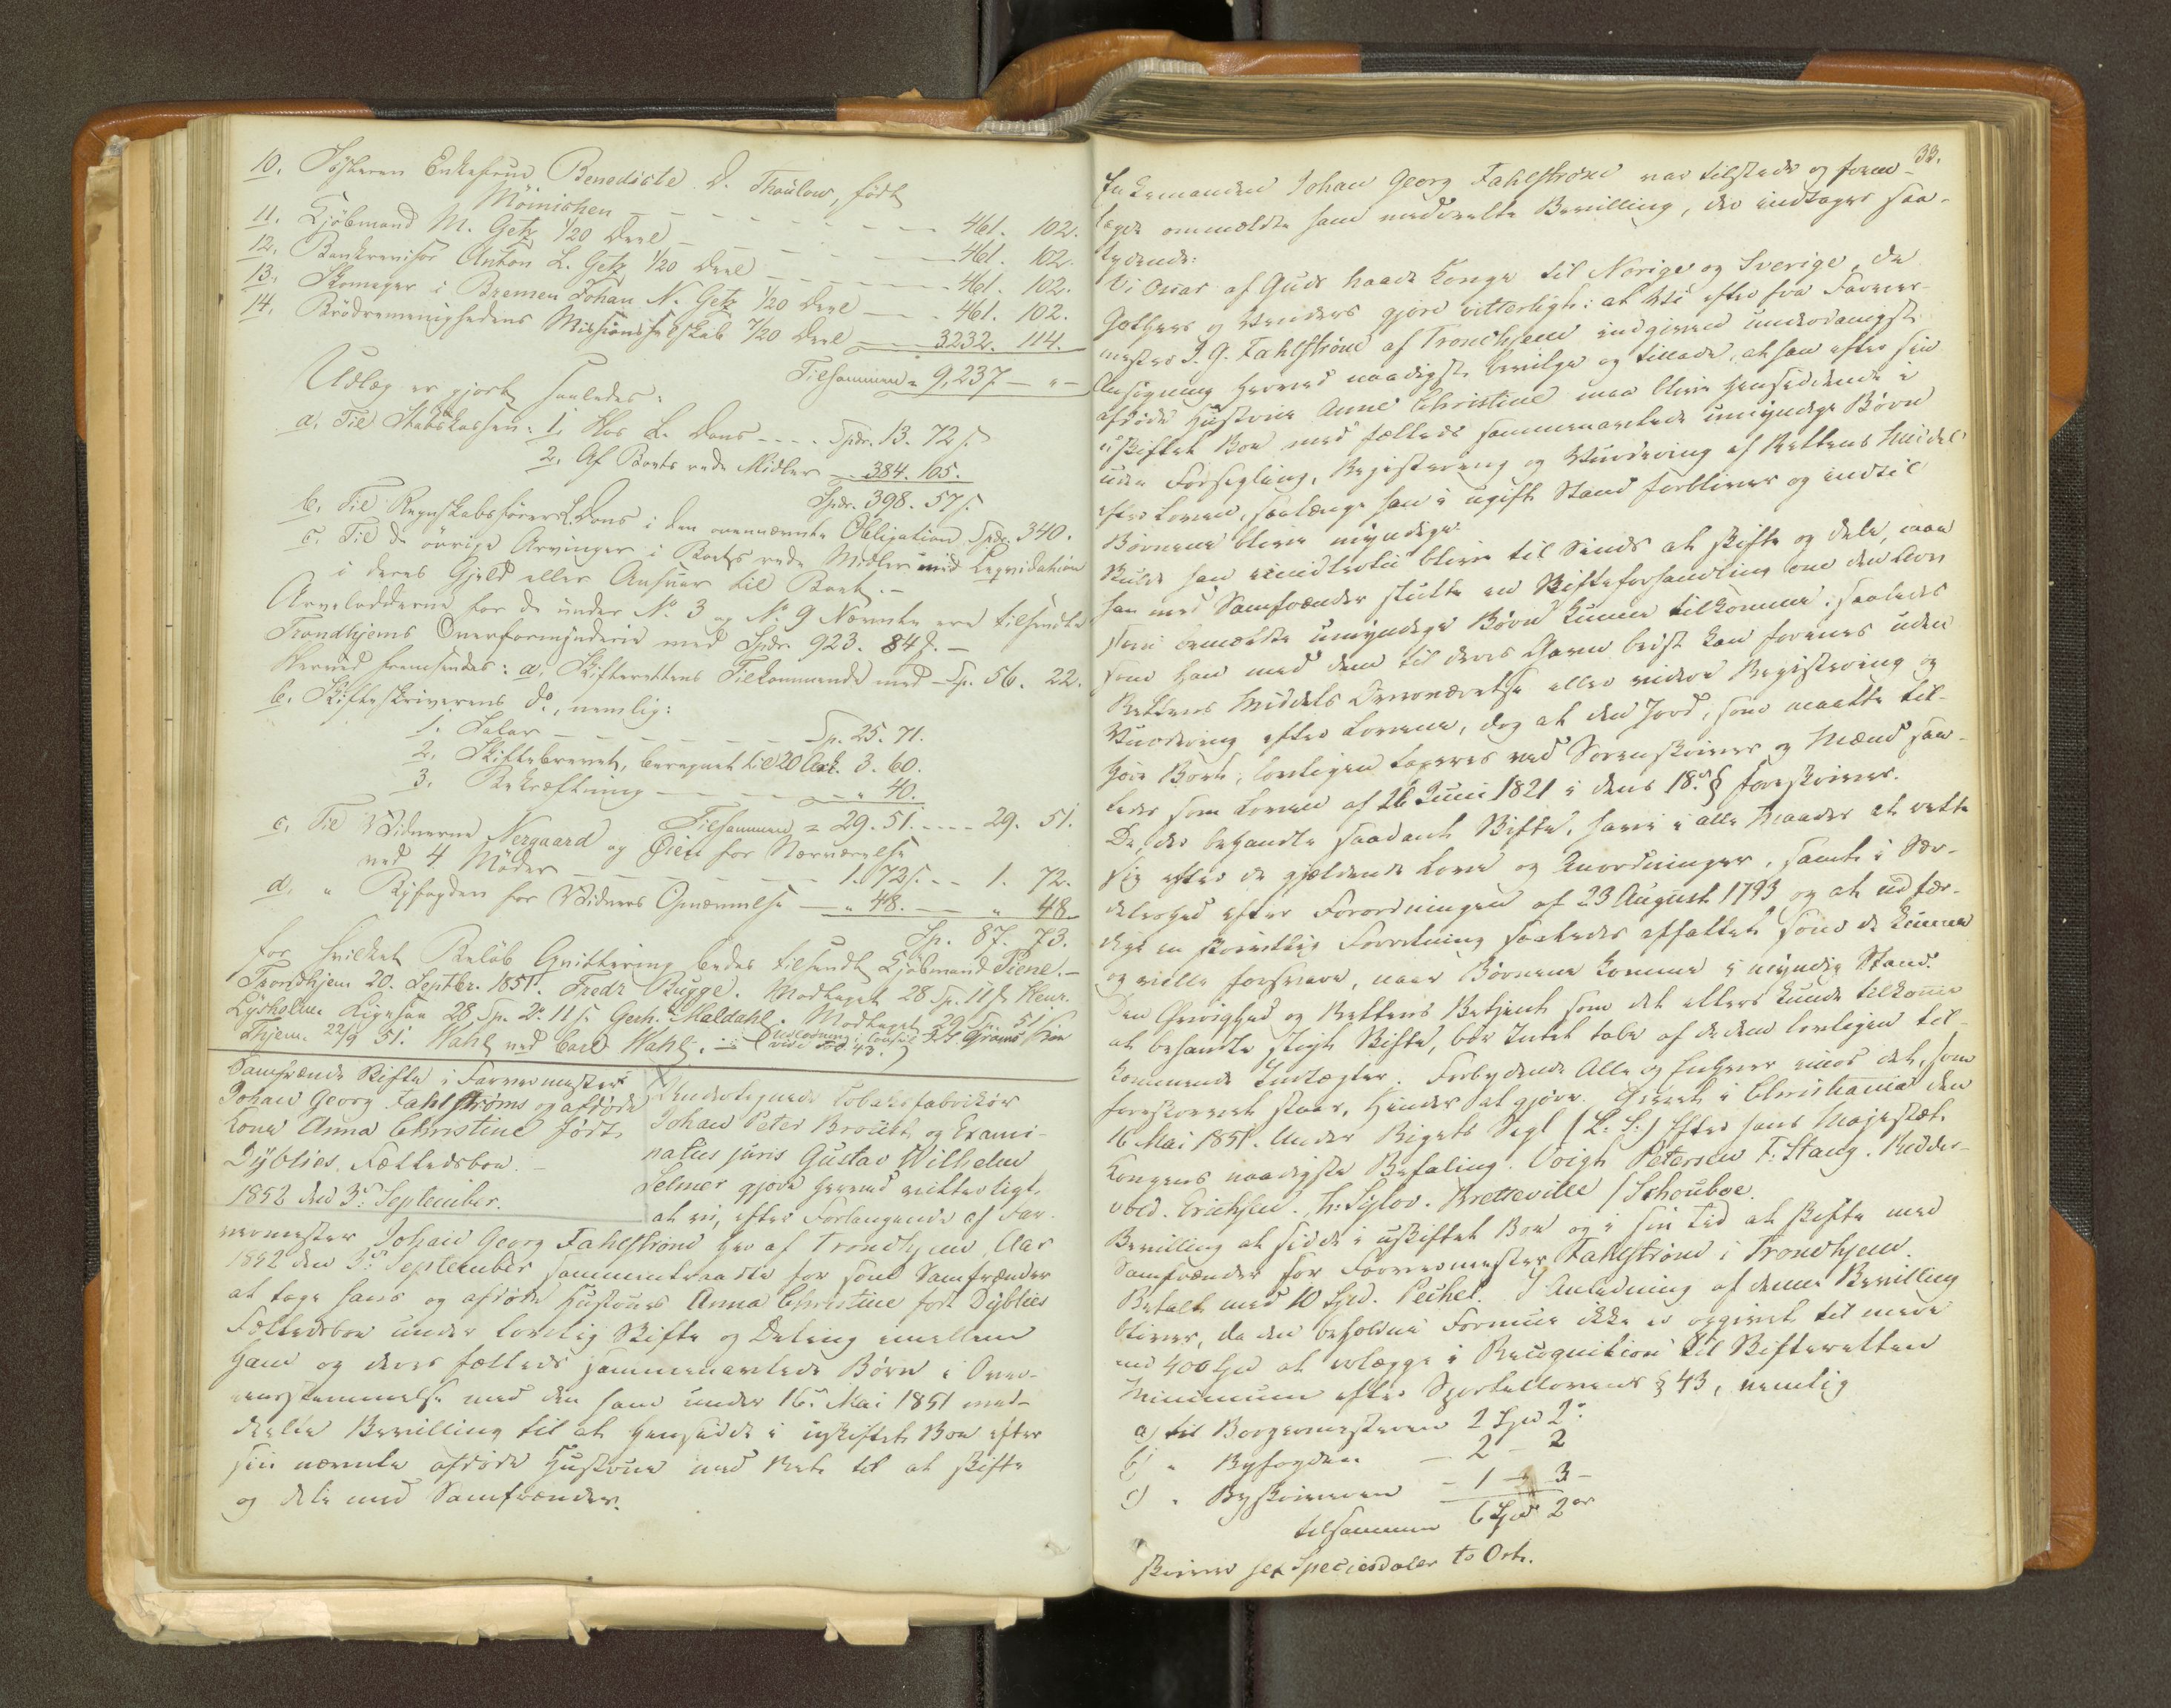 10. Søsteren Enkefrue Benedicte D. Thaulow, født
Möinichen - - - - - - 461. 102.
11. Kjöbmand M. Getz 1/20 Deel - - - - 461. 102.
12. Bankrevisor Anton L. Getz 1/20 Deel - - - 461. 102.
13. Skomager i Bremen Johan N. Getz 1/20 Deel - - 461. 102.
14. Brödremenighedens Missionsselskab 7/20 Deel - 3232. 114.
Tilsammen = 9,237 - " -
Udlæg er gjort saaledes:
a. Til Stabskassen: 1. Hos L. Dons - - - - Spdr. 13. 72 s.
2. Af Boets rede Midler - - 384. 105.
Spdr. 398. 57 s.
b. Til Regnskabsfører L. Dons i den ovennævnte Obligation Spdr. 340.
c. Til de övrige Arvinger i Boets rede Midler med Liqvidation
i deres Gjeld eller Ansvar til Boet. -
Arvelodderne for de under No. 3 og No. 9 Nævnte ere tilsendte
Trondhjems Overformynderie med Spdr. 923. 84 s. -
Herved fremsendes: a. Skifterettens Tilkommende med - Sp. 56. 22.
b. Skifteskriverens do., nemlig:
1. Salar - - - - - - - Sp. 25. 71.
2. Skiftebrevet, beregnet til 20 Ark. 3. 60.
3. Bekræftning - - - - - " 40.
Tilsammen = 29. 51. - - - - 29. 51.
c. Til Vidnerne Nergaard og Öien for Nærværelse
ved 4 Möder - - - - - - 1. 72 s. - - 1. 72.
d. " Byfogden for Vidners Opnævnelse - " 48. - " 48
Sp. 87. 73.
for hvilket Beløb Qvittering bedes tilsendt Kjöbmand Piene. -
Trondhjem 20. Septbr. 1851. Fredr Bugge. Modtaget 28 Sp. 11 s. Henr.
Lysholm. Ligesaa 28 Sp. 2 11 s. Gerh. Maldahl. Modtaget 29 Sp. 51
Thjem. 22/9 51. Wahl ved Carl Wahl.
vide Fol 43.
Samfrænde Skifte i Farvermester
Johan Georg Fahlstrøms og afdøde
Kone Anna Christine født
Dyblies Fælledsboe. -
1852 den 3die September.
Undertegnede Tobaksfabrikør
Johan Peter Broust, og Exami-
natus juris Gustav Wilhelm
Selmer gjøre herved vitterligt,
at vi, efter Forlangende af Far-
vermester Johan Georg Fahlstrøm her af Trondhjem, Aar
1852 den 3die September sammentraadte for som Samfrænder
at tage hans og afdøde Hustrues Anna Christine født Dyblies
Fælledsboe under lovlig Skifte og Deling imellem
ham og deres fælleds sammenavlede Børn i Over-
eensstemmelse med den ham under 16de Mai 1851 med-
deelte Bevilling til at hensidde i uskiftet Boe efter
sin nævnte afdøde Hustrue med Ret til at skifte
og dele med Samfrænder.
33.
Enkemanden Johan Georg Fahlstrøm var tilstede og frem-
lagde ommældte ham meddeelte Bevilling, der indtages saa-
lydende:
Vi Oscar af Guds Naade Konge til Norige og Sverige, de
Gothers og Venders gjøre vitterligt: at Vi efter fra Farver-
mester J. G. Fahlstrøm af Trondhjem indgiven underdanigst
Ansøgning herved naadigst bevilge og tillade, at han efter sin
afdøde Hustrue Anne Christine maa blive hensiddende i
uskiftet Boe med fælleds sammenavlede umyndige Børn
uden Forsegling, Registrering og Vurdering af Rettens Middel
efter Loven, saalænge han i ugift Stand forbliver og indtil
Børnene blive myndige.
Skulde han imidlertid blive til Sinds at skifte og dele, maa
han med Samfrænder slutte en Skifteforhandling om den Arv
som bemældte umyndige Børn kunne tilkomme, saaledes
som han med dem til deres Gavn bedst kan forenes uden
Rettens Middels Overværelse eller videre Registrering og
Vurdering efter Lovene, dog at den Jord, som maatte til-
høre Boet, lovligen taxeres ved Sorenskriver og Mænd saa-
ledes som Loven af 26 Juni 1821 i dens 18de § foreskriver.
De, der behandle saadant Skifte, have i alle Maader at rette
sig efter de gjældende Love og Anordninger, samt i Sær-
deleshed efter Forordningen af 23 August 1793 og at udfær-
dige en skriftlig Forretning saaledes affattet som de kunne
og ville forsvare, naar Børnene komme i myndig Stand.
Den Øvrighed og Rettens Betjent som det ellers kunde tilkomme
at behandle sligt Skifte, bør Intet tabe af de dem lovligen til-
kommende Indtægter. Forbydende Alle og Enhver imod det, som
foreskrevet staar, Hinder at gjøre. Givet i Christiania den
16 Mai 1851. Under Rigets Segl (L. S.) Efter Hans Majestæt
Kongens naadigste Befaling. Voigt Petersen F. Stang. Ridder-
vold. Erichsen. Th: Sylov. Bretteville / Schouboe.
Bevilling at sidde i uskiftet Boe og i sin Tid at skifte med
Samfrænder for Farvermester Fahlstrøm i Trondhjem.
Betalt med 10 Spd. Peckel. I Anledning af denne Bevilling
bliver, da den beholdne Formue ikke er opgivet til mere
end 400 Spd at erlægge i Recognition til Skifteretten
Minimum efter Sportellovens § 43, nemlig
a) til Borgermesteren 2 Spd 2
b) " Byfogden - 2 - 2
c) " Byskriveren - 1 - 3 -
tilsammen 6 Spd 2 ort
Skriver sex Speciesdaler to Ort.